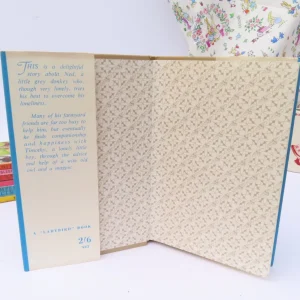 THIS is a delightful
story about Ned, a
little grey donkey who,
though very lonely, tries
his best to overcome his
loneliness.
Many of his farmyard
friends are far too busy to
help him, but eventually
he finds companionship
and happiness with
Timothy, a lonely little
boy, through the advice
and help of a wise old
owl and a magpie.
A "LADYBIRD" BOOK
2/6
NET